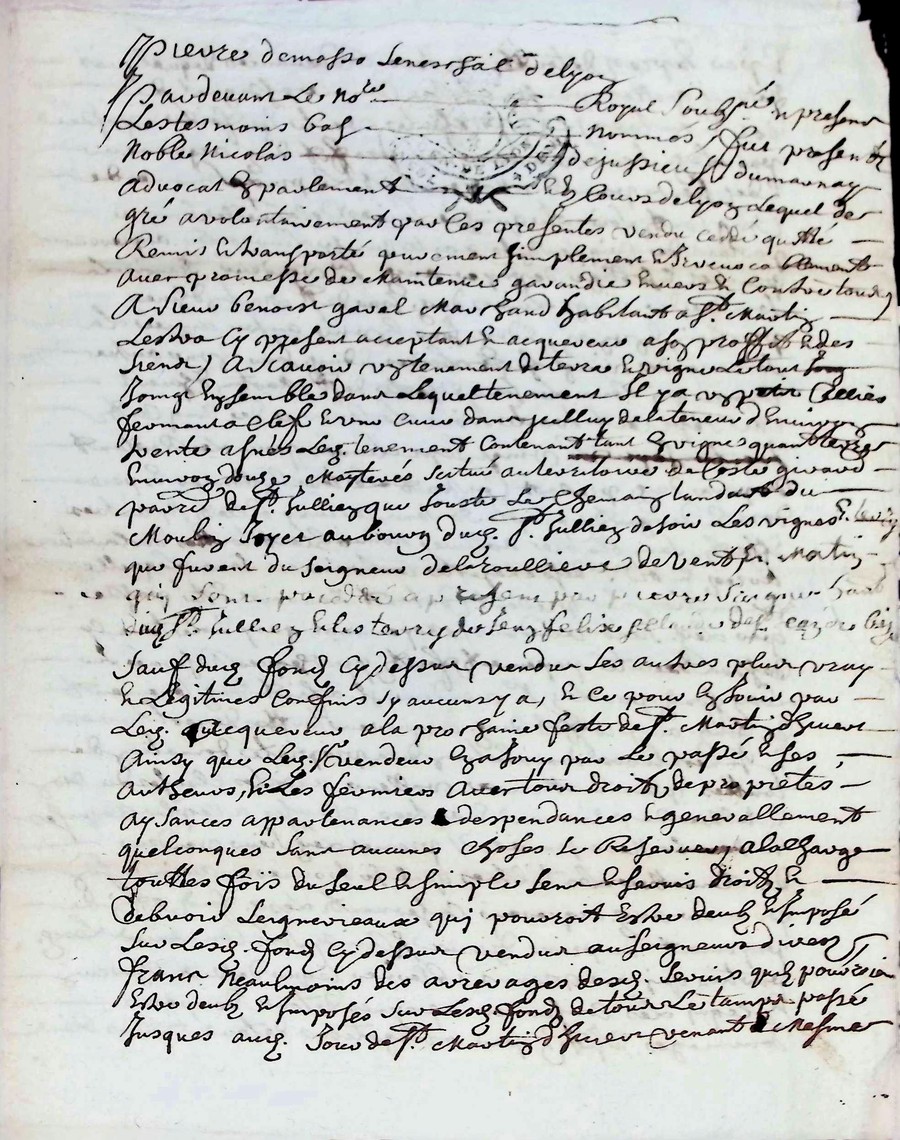 pierre demasso seneschal de lyon
Pardevant Le No.re Royal Soubsne en presence
Les tesmoins bas nommes, fut present
Noble Nicolas dejussieu Sr dumarnay
advocat en parlement & es Cours de lyon Lequel de
gré a volontairement par Ces presentes vendu ceddé quitté
Remis & transporté purement simplement & irrevocablement
avec promesse de Maintenir garandie envers & Contre tous
A sieur benoist garal Marchand habitant a St. Martin
Lestra Cy present acceptant & acquereur a son proffit & des
Siens, Ascavoir un tenement de terre & vigne Le tout
Joingt Ensemble dans Lequel tenement Il y a un petit Cellier
fermant a Clef & une Cuve dans Jcelluy de la teneur d'Environ
trente asnés Led. tenement Contenant tant En vigne quant terre
Environ douze Mesterés scitué au territoire de Coste girard
parr. de St. Jullien que Jouste Le Chemin tandant du
Moulin Joyet au bourg dud. St. Jullien de soir Les vignes
que furent du seigneur de la roulliere de vent Mr. Martin
qui sont a present par pierre
dud. St. Jullien & les terres de Felix
Sauf dud. fond Cy dessus vendus Ses autres plus vray
& Legitimes Confins sy aucuns y a, & Ce pour En Jouir par
Led. acquereur a la prochaine feste de St. Martin d'hivert
Ainsy que Led. Sr vendeur En a Jouy par Le passé & ses
autheurs, & Les fermiers avec tous droits, de proprietes
aysances appartenances & despendances & generallement
quelconques sans aucunes Choses Se Reserver, a la Charge
touttes foïs du seul & simple sens & servis droits &
debvoir Seignevieaux quj pourroit Estre deub & Imposé
Sur Lesd. fond Cy dessus vendus au seigneurs divers
franc Neaulmoins des arrerages desd. servis quil pourroien
Estre deub & Imposés sur Lesd. fond de tour Le tamps passé
Jusques aud. Jour de St. Martin d'hivert venant & Mesmes